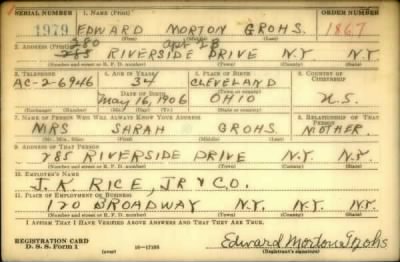 SERIAL NUMBER 1. NAME (Print) ORDER NUMBER
1979 EDWARD MORTON GROHS. 1867
(First) (Middle) (Last)
280 apt 2B
2. ADDRESS (Print)
285 RIVERSIDE DRIVE N.Y. N.Y.
(Number and street or R. F. D. number) (Town) (County) (State)
3. TELEPHONE 4. AGE IN YEARS 5. PLACE OF BIRTH 6. COUNTRY OF CITIZENSHIP
AC-2-6946 34 CLEVELAND
DATE OF BIRTH (Town or county)
May 16, 1906 OHIO U.S.
(Exchange) (Number) (Mo.) (Day) (Yr.) (State or country)
7. NAME OF PERSON WHO WILL ALWAYS KNOW YOUR ADDRESS 8. RELATIONSHIP OF THAT PERSON
MRS SARAH GROHS. MOTHER.
(Mr., Mrs., Miss) (First) (Middle) (Last)
9. ADDRESS OF THAT PERSON
285 RIVERSIDE DRIVE N.Y. N.Y.
(Number and street or R. F. D. number) (Town) (County) (State)
10. EMPLOYER'S NAME
J. K. RICE, JR & CO.
11. PLACE OF EMPLOYMENT OR BUSINESS
120 BROADWAY N.Y. N.Y. N.Y.
(Number and street or R. F. D. number) (Town) (County) (State)
I AFFIRM THAT I HAVE VERIFIED ABOVE ANSWERS AND THAT THEY ARE TRUE.
REGISTRATION CARD
D. S. S. Form 1 (over) Edward Morton Grohs
(Registrant's signature)